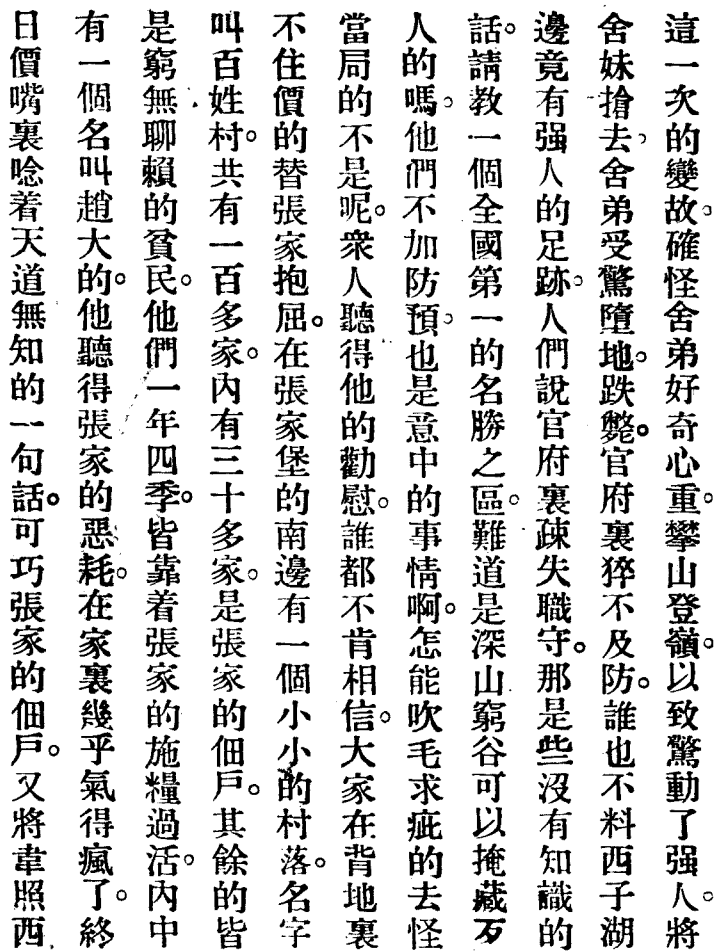 這一次的變故。確怪舍弟好奇心重。攀山登嶺。以致驚動了强人。將
舍妹搶去。舍弟受驚墮地。跌斃。官府裏猝不及防。誰也不料西子湖
邊竟有强人的足跡。人們說官府裏疎失職守。那是些沒有知識的
話。請教一個全國第一的名勝之區。難道是深山窮谷可以掩藏歹
人的嗎。他們不加防預。也是意中的事情啊。怎能吹毛求疵的去怪
當局的不是呢。衆人聽得他的勸慰。誰都不肯相信。大家在背地裏
不住價的替張家抱屈。在張家堡的南邊有一個小小的村落。名字
叫百姓村。共有一百多家。內有三十多家。是張家的佃戶。其餘的皆
是窮無聊賴的貧民。他們一年四季。皆靠着張家的施糧過活。內中
有一個名叫趙大的。他聽得張家的惡耗。在家裏幾乎氣得瘋了。終
日價嘴裏唸着天道無知的一句話。可巧張家的佃戶。又將韋照西